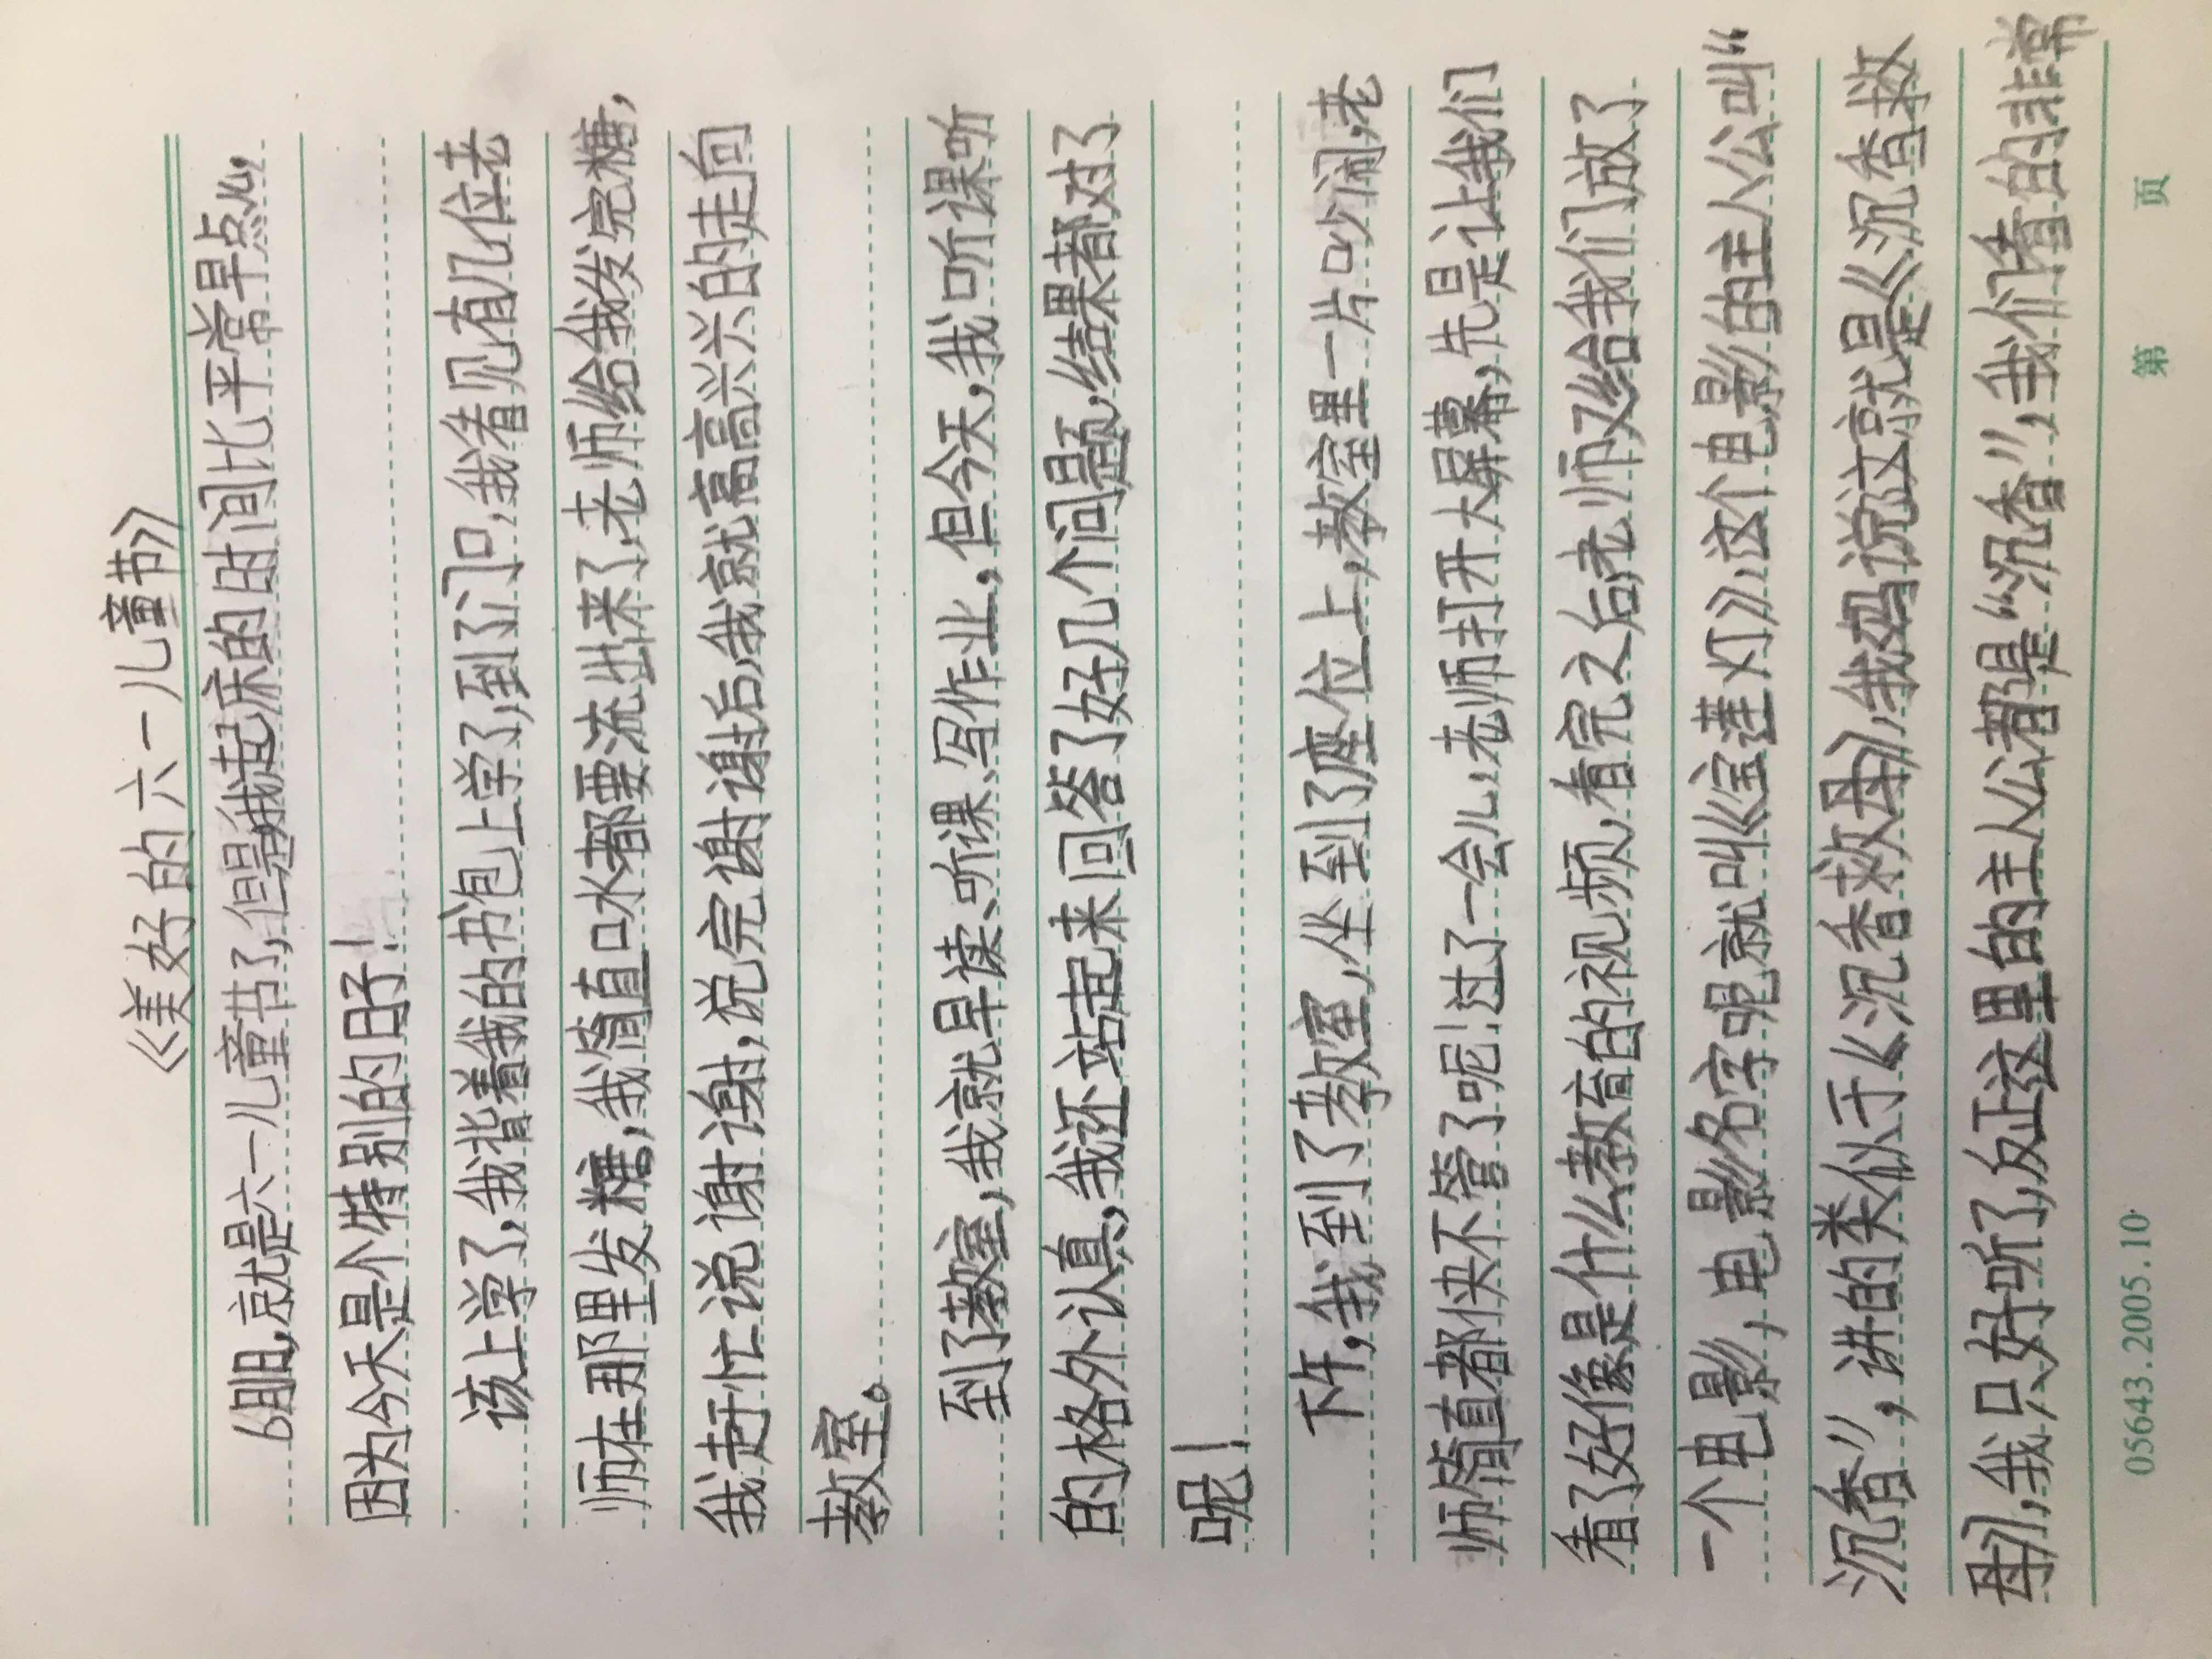 《美好的六一儿童节》
6月1日,就是六一儿童节了,但是我起床的时间比平常早点儿,
因为今天是个特别的日子!
该上学了,我背着我的书包上学了,到了门口,我看见有几位老
师在那里发糖,我简直口水都要流出来了,老师给我发完糖,
我赶忙说谢谢,说完谢谢后,我就高高兴兴的走向
教室。
到了教室,我就早读、听课、写作业,但今天,我听课听
的格外认真,我还站起来回答了好几个问题,结果都对了
呢!
下午,我到了教室,坐到了座位上,教室里一片吵闹,老
师简直都快不管了呢!过了一会儿,老师打开大屏幕,先是让我们
看了好像是什么教育的视频,看完之后,老师又给我们放了
一个电影,电影名字呢就叫《宝莲灯》,这个电影的主人公叫“
沉香”,讲的类似于《沉香救母》,我妈说这就是《沉香救
母》,我只好听了,反正这里的主人公都是“沉香”,我们看的非常
05643.2005.10
第 页